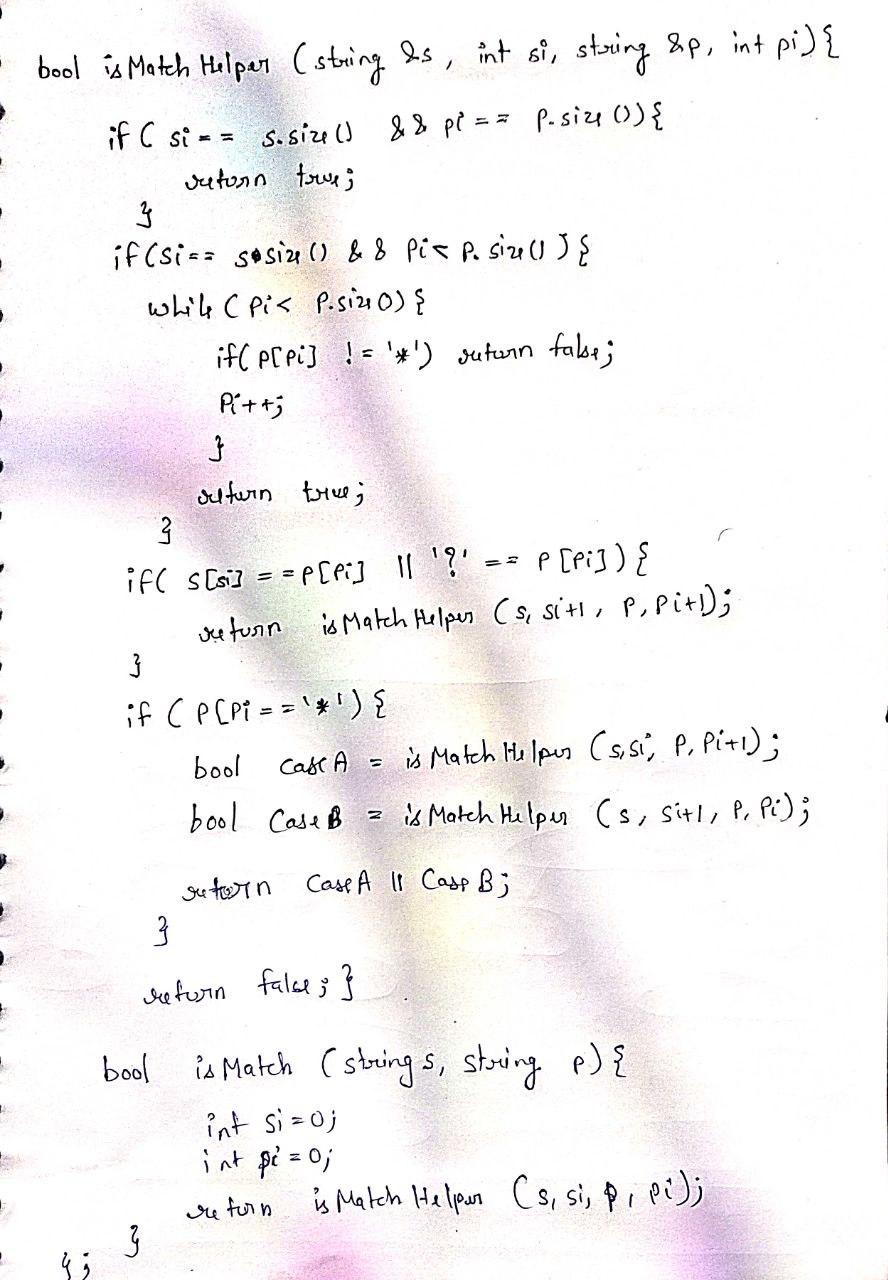 bool isMatchHelper (string &s, int si, string &p, int pi){
if( si == s.size() && pi == p.size()){
return true;
}
if(si == s.size() && pi < p.size()){
while(pi < p.size()){
if(p[pi] != '*') return false;
pi++;
}
return true;
}
if( s[si] == p[pi] || '?' == p[pi]){
return isMatchHelper (s, si+1, p, pi+1);
}
if ( p[pi == '*'){
bool caseA = isMatchHelper (s,si, p, pi+1);
bool CaseB = isMatchHelper (s, si+1, p, pi);
return CaseA || CaseB;
}
return false; }
bool isMatch (string s, string p){
int si=0;
int pi=0;
return isMatchHelper (s, si, p, pi);
}
};